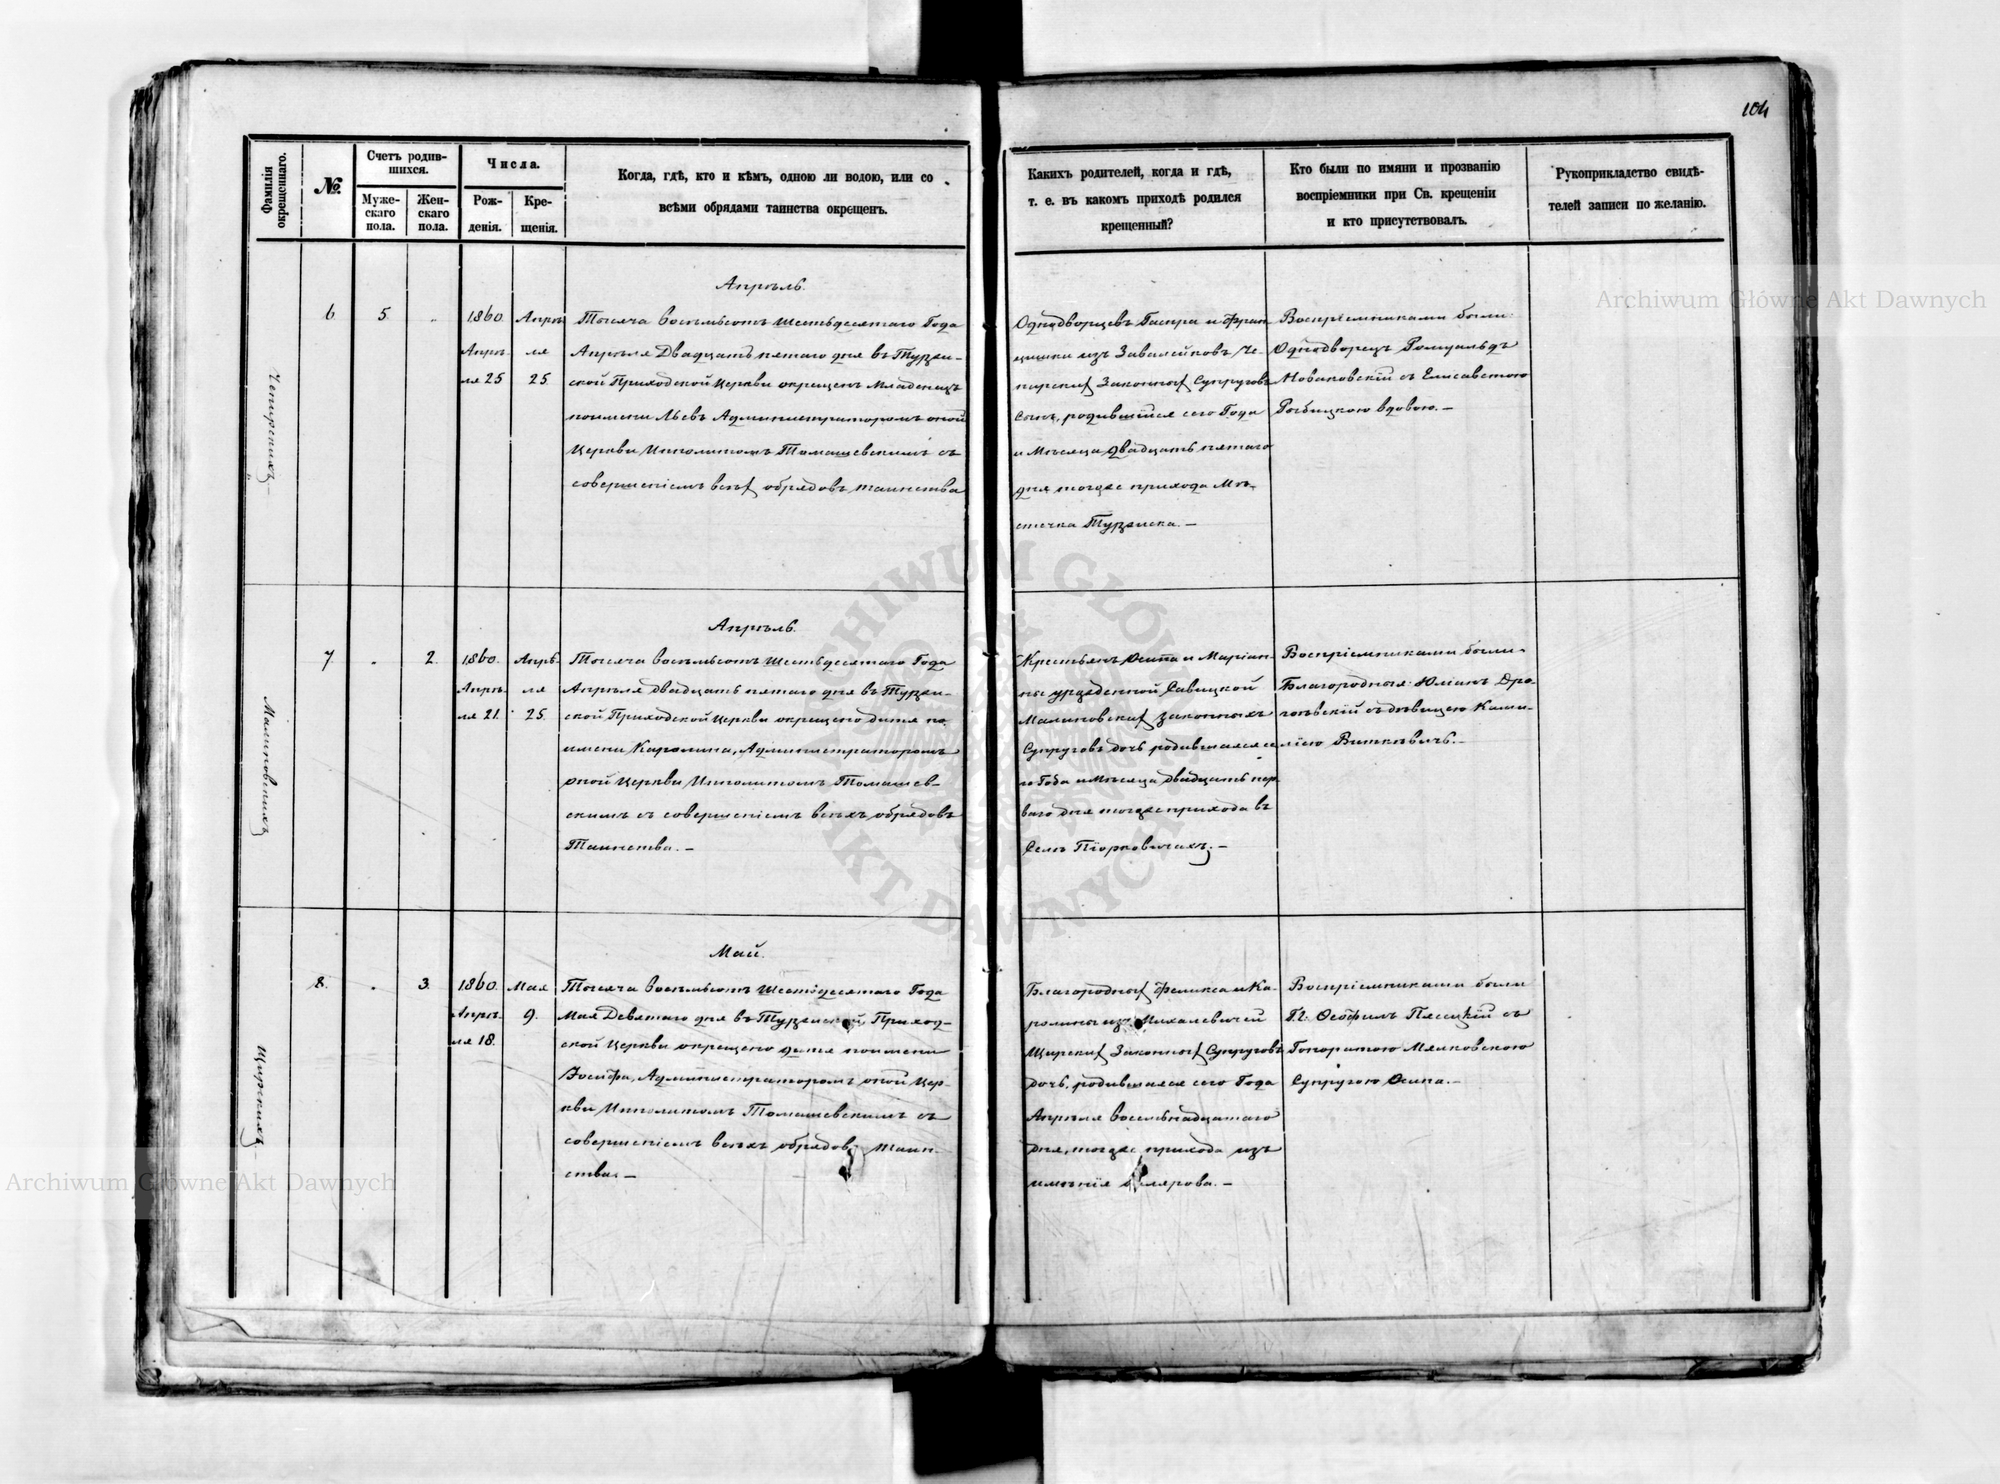 104
Фамилія окрещеннаго.
№.
Счетъ родив-
шихся.
Муже-
скаго
пола.
Жен-
скаго
пола.
Числа.
Рож-
денія.
Кре-
щенія.
Когда, гдѣ, кто и кѣмъ, одною ли водою, или со
всѣми обрядами таинства окрещенъ.
Какихъ родителей, когда и гдѣ,
т. е. въ какомъ приходѣ родился
крещенный?
Кто были по имяни и прозванію
воспріемники при Св. крещеніи
и кто присутствовалъ.
Рукоприкладство свидѣ-
телей записи по желанію.
Archiwum Główne Akt Dawnych
6
5
1860
Апрѣ-
ля 25
Апрѣ-
ля
25
Апрѣль.
Тысяча восемьсотъ шестьдесятаго Года
Апрѣля Двадцать пятаго дня въ
ской Приходской Церкви окрещенъ Младенецъ
по имени Львъ Администраторомъ оной
Церкви Ипполитомъ Томашевскимъ съ
совершеніемъ всѣх обрядовъ таинства
Однодворцевъ Гаспра и Фран-
цишки изъ
Законных Супруговъ
Сынъ, родившійся сего Года
и Мѣсяца двадцать пятаго
дня тогоже прихода Мѣ-
стечка
Воспріемниками были:
Однодворецъ Ромуальдъ
Новаковскій съ Елисаветою
вдовою. —
7
2
1860.
Апрѣ-
ля 21.
Апрѣ-
ля
25.
Малиновскихъ
Апрѣль.
Тысяча восемьсотъ шестьдесятаго Года
Апрѣля двадцать пятаго дня въ
ской Приходской Церкви окрещено дитя по
имени Каролина, Администраторомъ
оной Церкви Ипполитомъ Томашев-
скимъ съ совершеніемъ всѣхъ обрядовъ
Таинства. —
Крестьянъ Осипа и Маріан-
ны урожденной Савицкой
Малиновских законныхъ
Супруговъ дочь родившаяся се-
го Года и Мѣсяца двадцать пер-
ваго дня тогоже прихода въ
Селѣ
Воспріемниками были
Благородные: Юліанъ
съ дѣвицею Ками-
лією Виткевичь. —
8.
3.
1860
Апрѣ-
ля 18.
Мая
9.
Щирскихъ
Май.
Тысяча восемьсотъ шестьдесятаго Года
Мая Девятаго дня въ Приход-
ской Церкви окрещено дитя по имени
Администраторомъ оной Цер-
кви Ипполитомъ Томашевскимъ съ
совершеніемъ всѣхъ обрядовъ Таин-
ства. —
Благородных Феликса и Ка-
ролины изъ Михалевичей
Щирских Законных Супруговъ
дочь, родившаяся сего Года
Апрѣля восемьнадцатаго
дня, тогоже прихода изъ
имѣнія
Воспріемниками были
съ
Гоноратою
Супругою Осипа. —
Archiwum Główne Akt Dawnych
ARCHIWUM GŁÓWNE AKT DAWNYCH